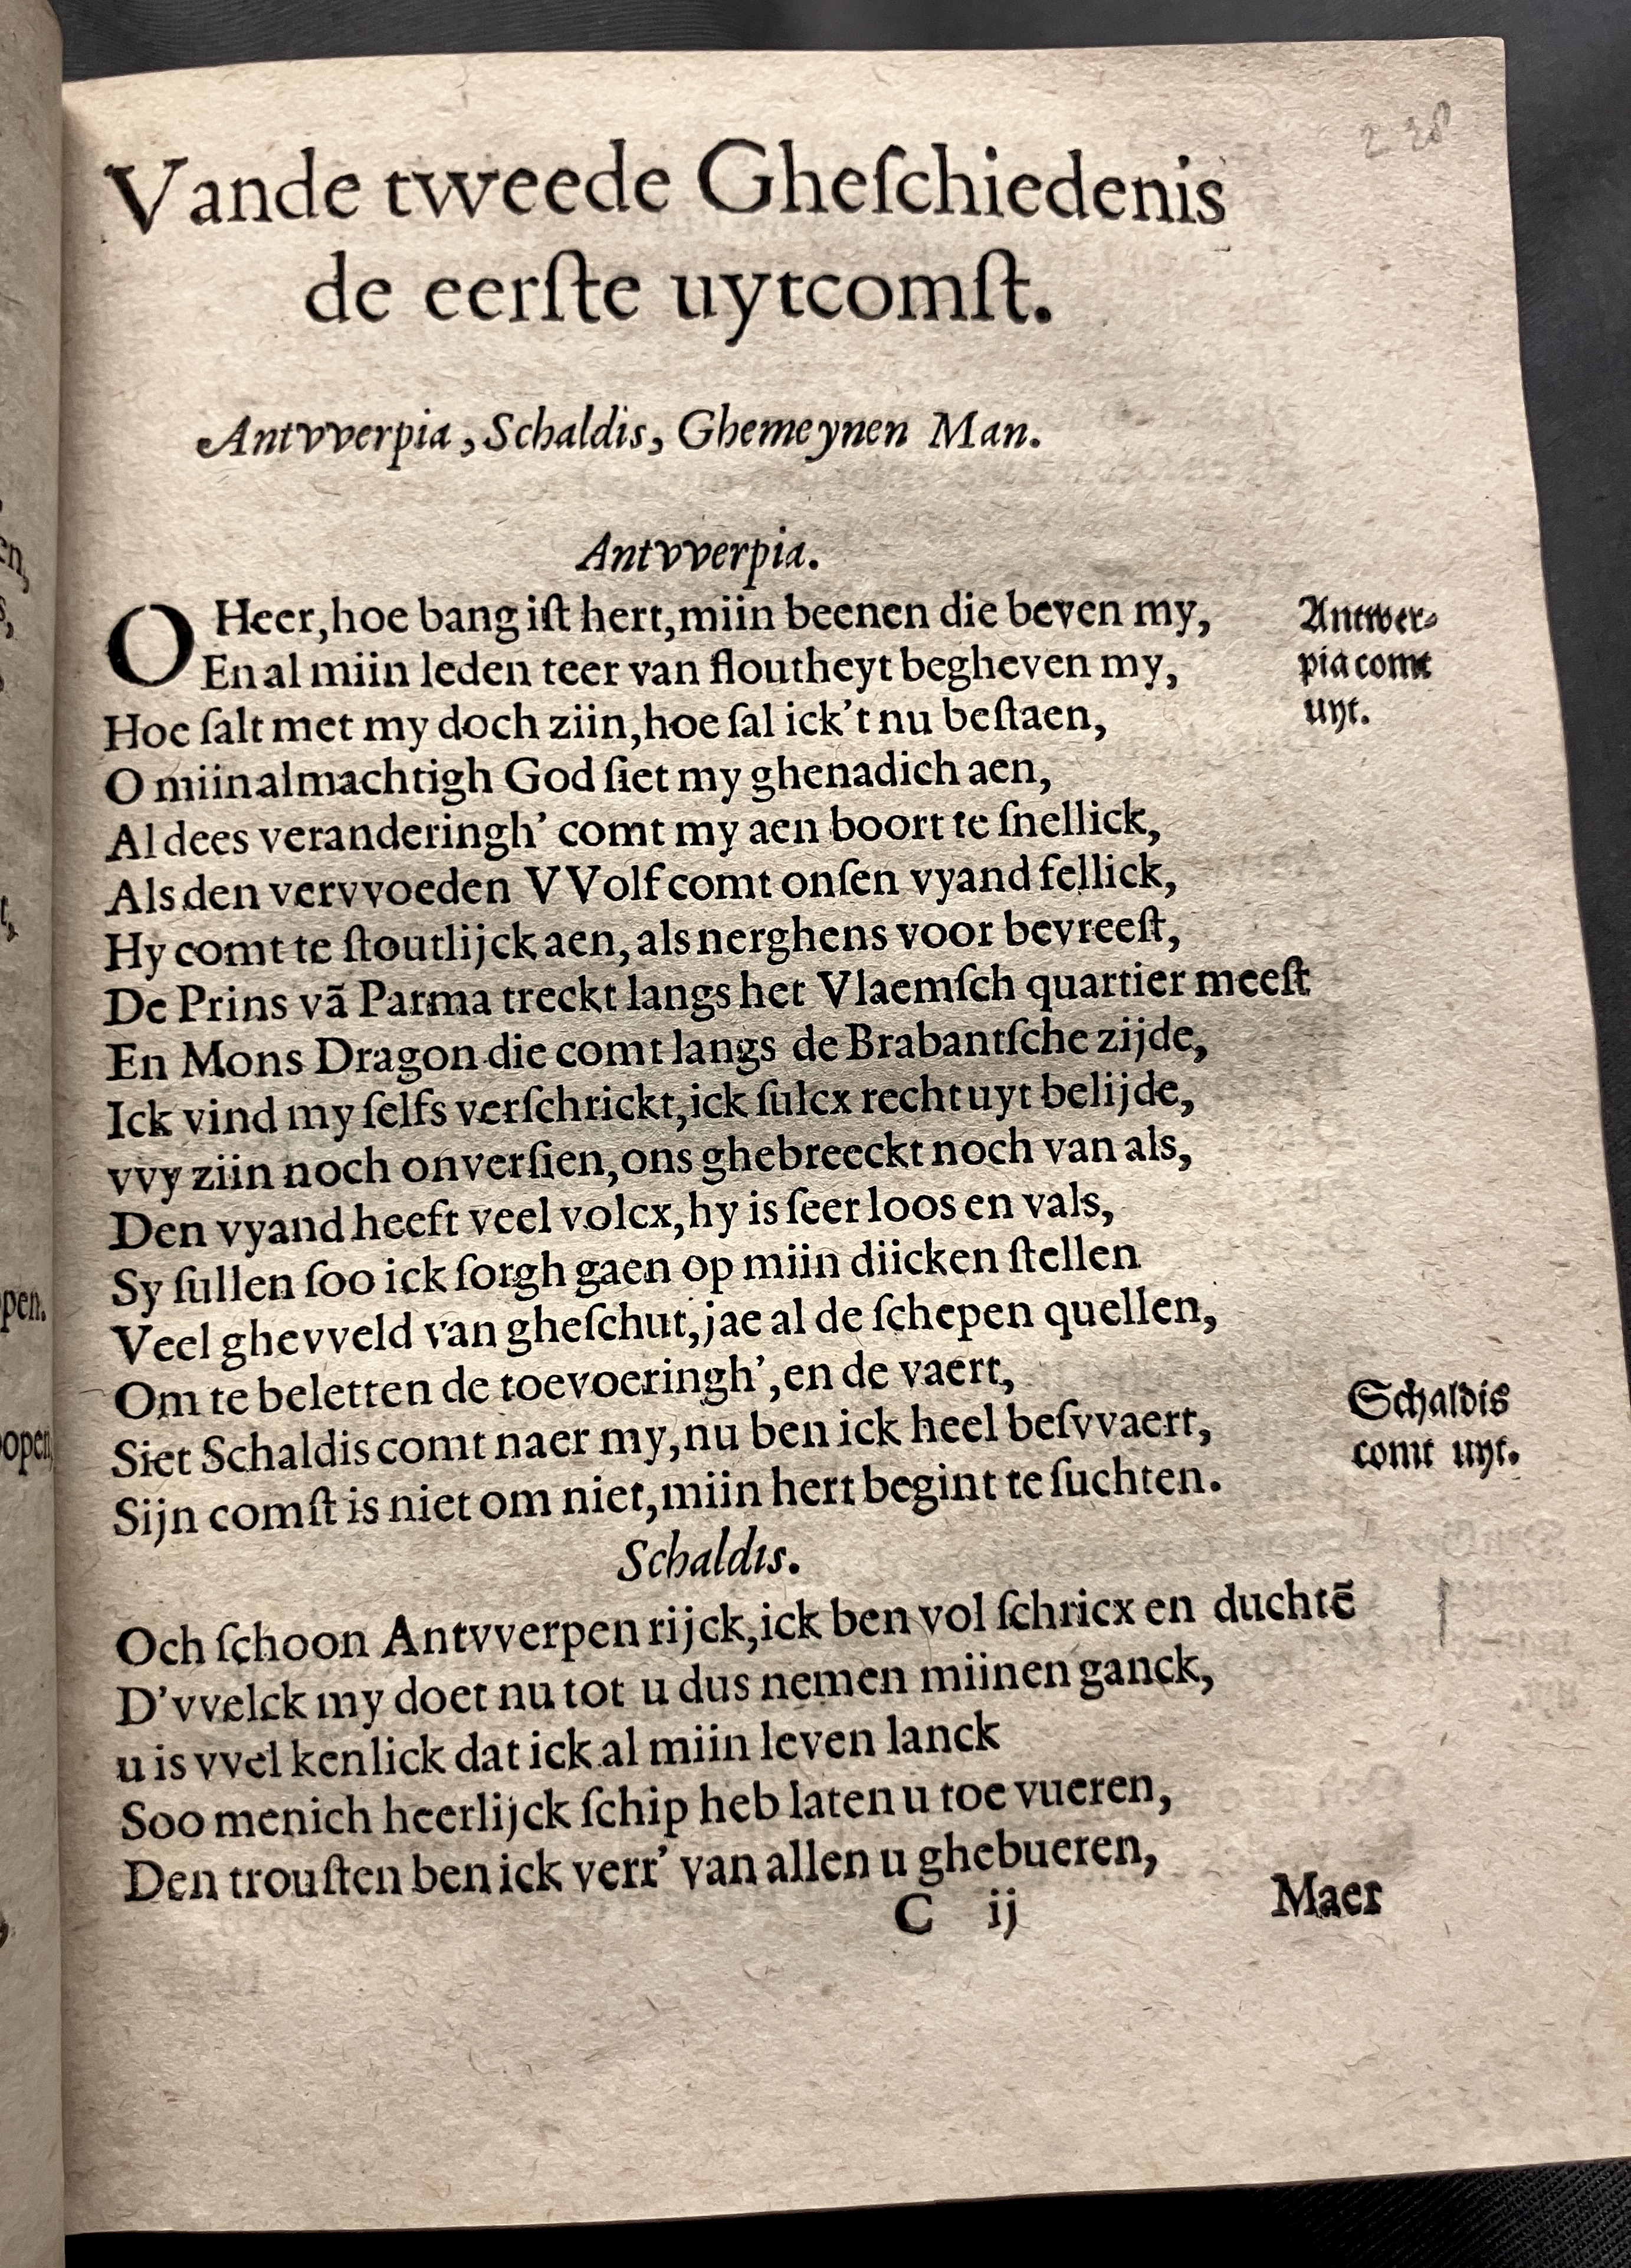 Vande tweede Gheſchiedenis
de eerſte uytcomſt.
Antvverpia, Schaldis, Ghemeynen Man.
Antvverpia.
O Heer, hoe bang iſt hert, miin beenen die beven my,
En al miin leden teer van floutheyt begheven my,
Hoe ſalt met my doch ziin, hoe ſal ick't nu beſtaen,
O miin almachtigh God ſiet my ghenadich aen,
Al dees veranderingh' comt my aen boort te ſnellick,
Als den vervvoeden VVolf comt onſen vyand fellick,
Hy comt te ſtoutlijck aen, als nerghens voor bevreeſt,
De Prins vã Parma treckt langs het Vlaemſch quartier meeſt
En Mons Dragon die comt langs de Brabantſche zijde,
Ick vind my ſelfs verſchrickt, ick ſulcx recht uyt belijde,
vvy ziin noch onverſien, ons ghebreeckt noch van als,
Den vyand heeft veel volcx, hy is ſeer loos en vals,
Sy ſullen ſoo ick ſorgh gaen op miin diicken ſtellen
Veel ghevveld van gheſchut, jae al de ſchepen quellen,
Om te beletten de toevoeringh', en de vaert,
Siet Schaldis comt naer my, nu ben ick heel beſvvaert,
Sijn comſt is niet om niet, miin hert begint te ſuchten.
Schaldis.
Och ſchoon Antvverpen rijck, ick ben vol ſchricx en duchtẽ
D'vvelck my doet nu tot u dus nemen miinen ganck,
u is vvel kenlick dat ick al miin leven lanck
Soo menich heerlijck ſchip heb laten u toe vueren,
Den trouſten ben ick verr' van allen u ghebueren,
C ij
Maer
Antwer-
pia comt
uyt.
Schaldis
comt uyt.
pen.
open,
en,